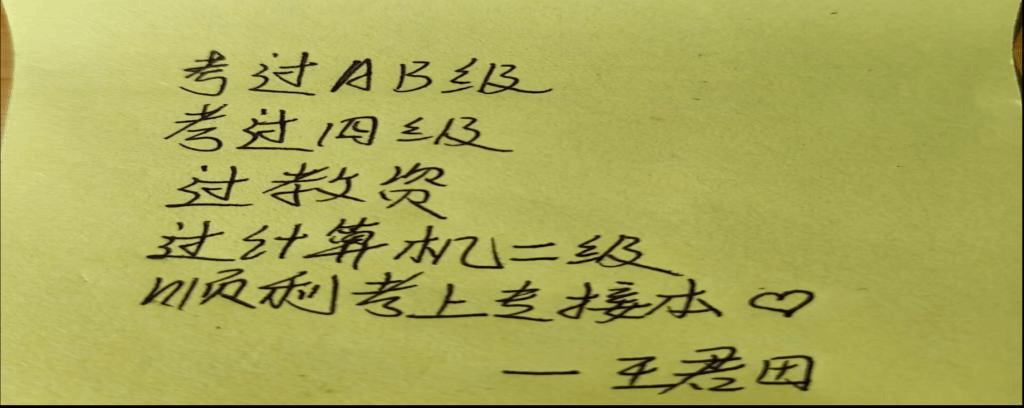 考过AB级
考过四级
过教资
过计算机二级
顺利考上专接本♡
— 王君田